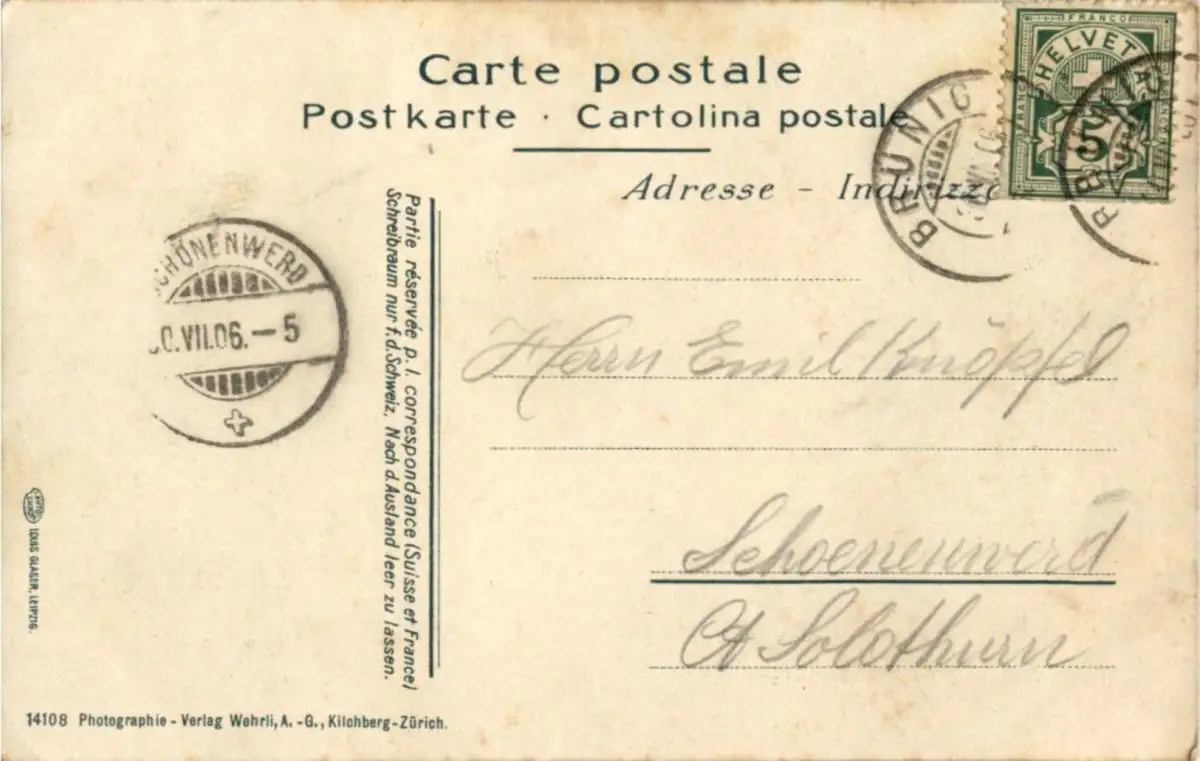 Carte postale
Postkarte · Cartolina postale
Adresse - Indirizzo
FRANCO
HELVETIA
FRANCO
5
BRÜNIG
BRÜNIG
SCHÖNENWERD
0.VII.06.-5
Partie réservée p. l. correspondance (Suisse et France)
Schreibraum nur f. d. Schweiz, Nach d. Ausland leer zu lassen.
Herrn Emil Knöpfel
Schoenenwerd
Ct Solothurn
LOUIS GLASER, LEIPZIG.
14108 Photographie - Verlag Wehrli, A. - G., Kilchberg-Zürich.